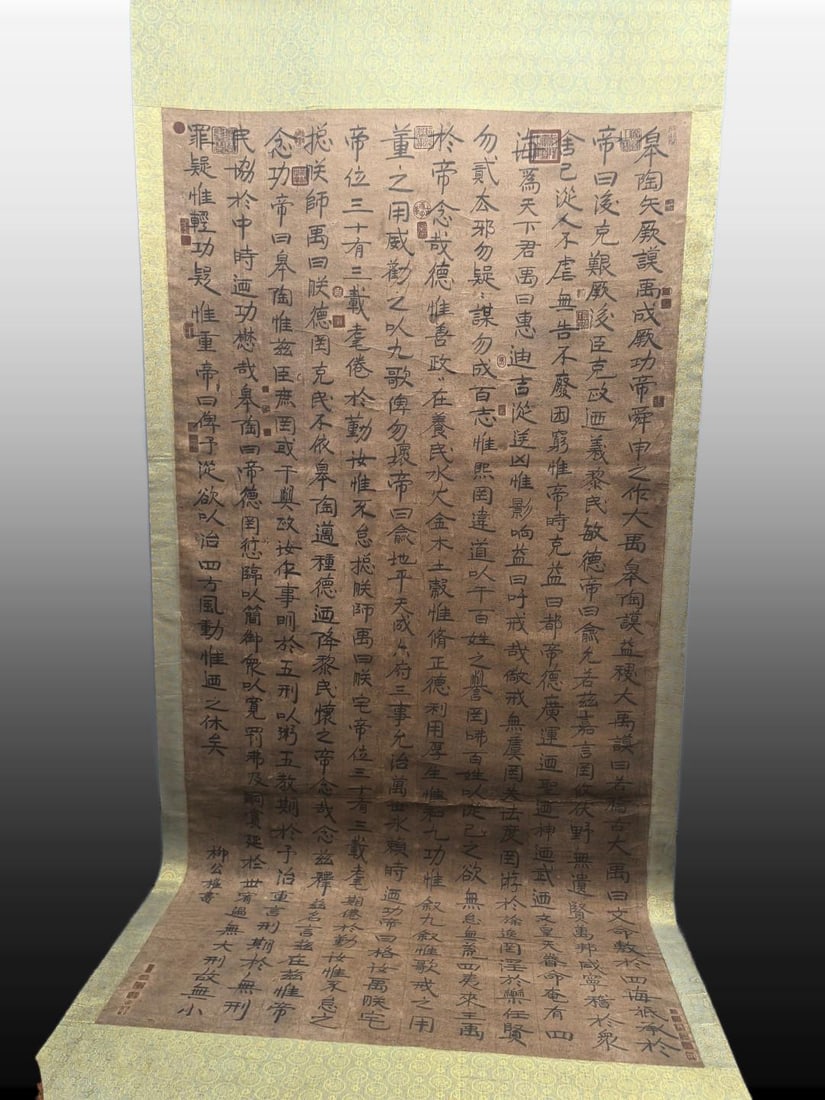 皋陶矢厥謨禹成厥功帝舜申之作大禹皋陶謨益稷大禹謨曰若稽古大禹曰文命敷於四海祗承於
帝曰後克艱厥後臣克政迺義黎民敏德帝曰俞允若茲嘉言罔攸伏野無遺賢萬邦咸寧稽於衆
舍己從人不虐無告不廢困窮惟帝時克益曰都帝德廣運迺聖迺神迺武迺文皇天眷命奄有四
海為天下君禹曰惠迪吉從逆凶惟影响益曰吁戒哉儆戒無虞罔失法度罔游於逸罔淫於樂任賢
勿貳去邪勿疑疑謀勿成百志惟熙罔違道以干百姓之譽罔咈百姓以從己之欲無怠無荒四夷來王禹
於帝念哉德惟善政政在養民水火金木土穀惟脩正德利用厚生惟和九功惟叙九叙惟歌戒之用
董之用威勸之以九歌俾勿壞帝曰俞地平天成六府三事允治萬世永賴時迺功帝曰格汝禹朕宅
帝位三十有三載耄倦於勤汝惟不怠揔朕師禹曰朕宅帝位三十有三載耄期倦於勤汝惟不怠之
揔朕師禹曰朕德罔克民不依皋陶邁種德迺降黎民懷之帝念哉念茲釋茲名言茲在茲惟帝
念功帝曰皋陶惟茲臣庶罔或干與政汝作事明於五刑以弼五教期於予治重言刑期於無刑
民協於中時迺功懋哉皋陶曰帝德罔愆臨以簡御衆以寬罰弗及嗣賞延於世宥過無大刑故無小
罪疑惟輕功疑惟重帝曰俾予從欲以治四方風動惟迺之休矣
柳公權書